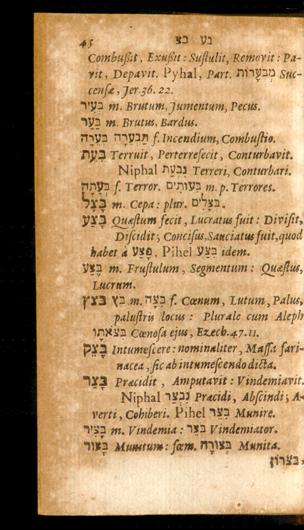 45 בע בצ
Combussit, Exussit: Sustulit, Removit: Pa-
vit, Depavit. Pyhal, Part. מְבֹעָרוֹת Suc-
censæ, Jer. 36. 22.
בְּעִיר m. Brutum, Jumentum, Pecus.
בַּעַר m. Brutus. Bardus.
תַּבְעֵרָה בְּעֵרָה f. Incendium, Combustio.
בָּעַת Terruit, Perterrefecit, Conturbavit.
Niphal נִבְעַת Terreri, Conturbari.
בְּעָתָה f. Terror. בִּעוּתִים m. p. Terrores.
בָּצָל m. Cepa: plur. בְּצָלִים.
בָּצַע Quæstum fecit, Lucratus fuit: Divisit,
Discidit; Concisus, Sauciatus fuit, quod
habet à פָּצַע, Pihel בִּצַּע idem.
בֶּצַע m. Frustulum, Segmentum: Quæstus,
Lucrum.
בצץ בֹּץ m. בִּצָּה f. Cœnum, Lutum, Palus,
palustris locus: Plurale cum Aleph
בִּצֹּאתָו Cœnosa ejus, Ezech. 47. 11.
בָּצֵק Intumescere: nominaliter, Massa fari-
nacea, sic ab intumescendo dicta.
בָּצַר Præcidit, Amputavit: Vindemiavit.
Niphal נִבְצַר Præcidi, Abscindi; A-
verti, Cohiberi. Pihel בִּצֵּר Munire.
בָּצִיר m. Vindemia: בֹּצֵר Vindemiator.
בָּצוּר Munitum: fœm. בְּצוּרָה Munita.
בִּצָּרוֹן